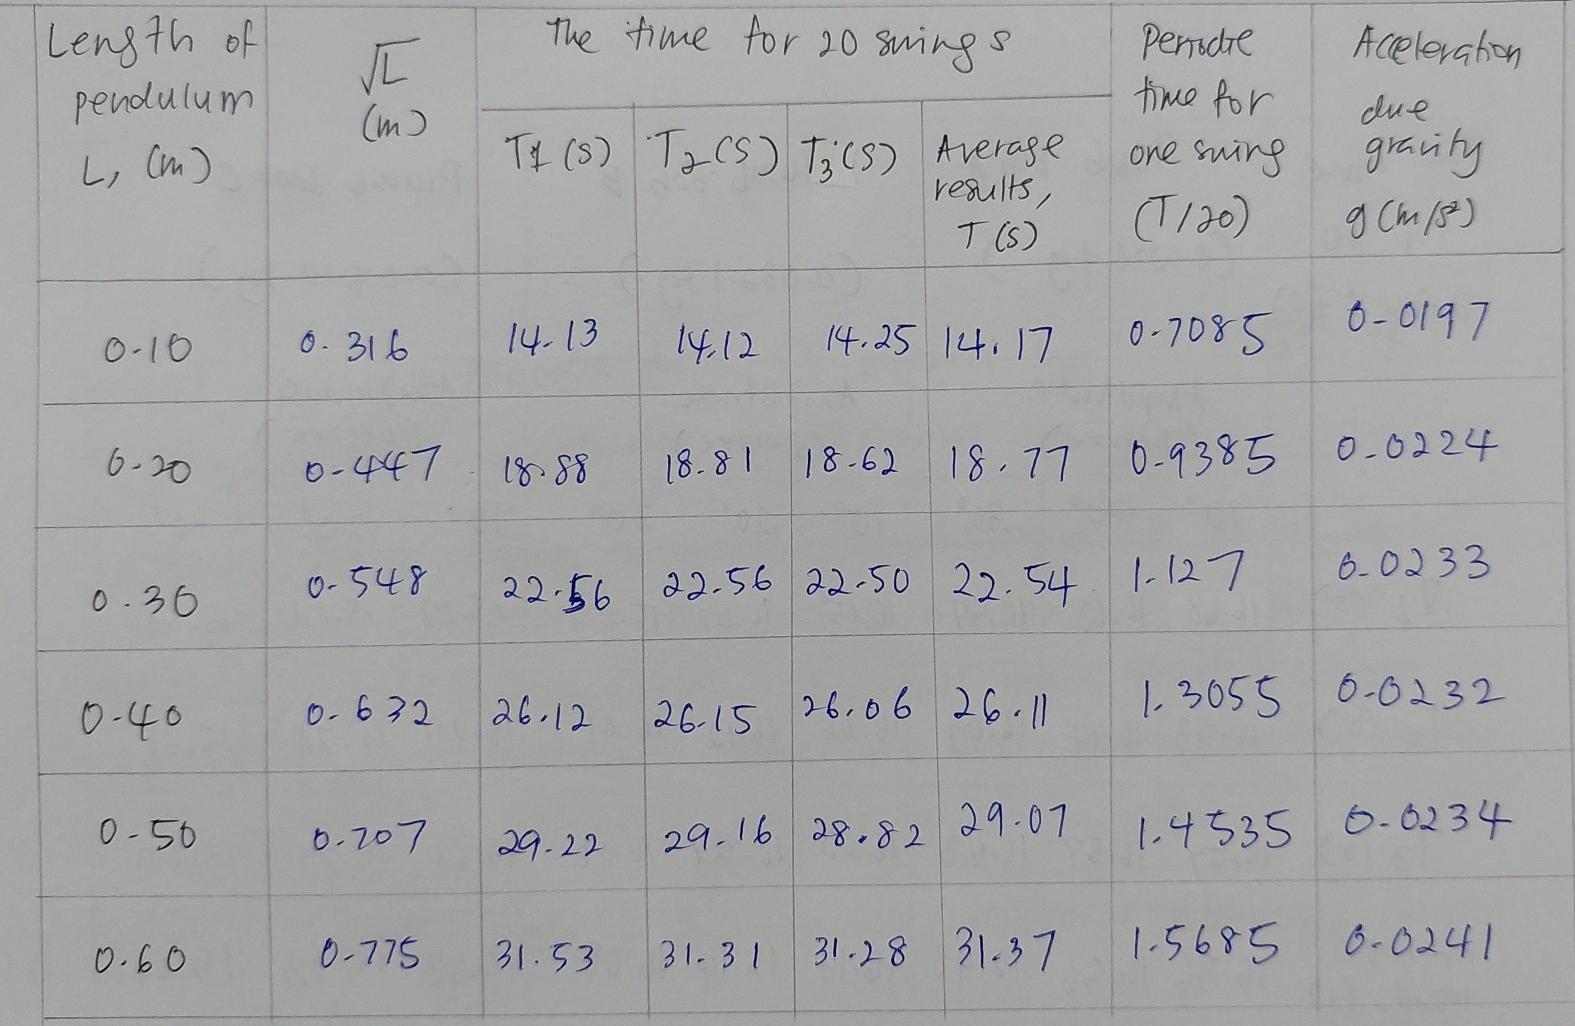 Length of pendulum L, (m) | √L (m) | The time for 20 swings | Periodic time for one swing (T/20) | Acceleration due gravity g (m/s²)
T1 (s) | T2 (s) | T3 (s) | Average results, T (s)
0.10 | 0.316 | 14.13 | 14.12 | 14.25 | 14.17 | 0.7085 | 0.0197
0.20 | 0.447 | 18.88 | 18.81 | 18.62 | 18.77 | 0.9385 | 0.0224
0.30 | 0.548 | 22.56 | 22.56 | 22.50 | 22.54 | 1.127 | 0.0233
0.40 | 0.632 | 26.12 | 26.15 | 26.06 | 26.11 | 1.3055 | 0.0232
0.50 | 0.707 | 29.22 | 29.16 | 28.82 | 29.07 | 1.4535 | 0.0234
0.60 | 0.775 | 31.53 | 31.31 | 31.28 | 31.37 | 1.5685 | 0.0241